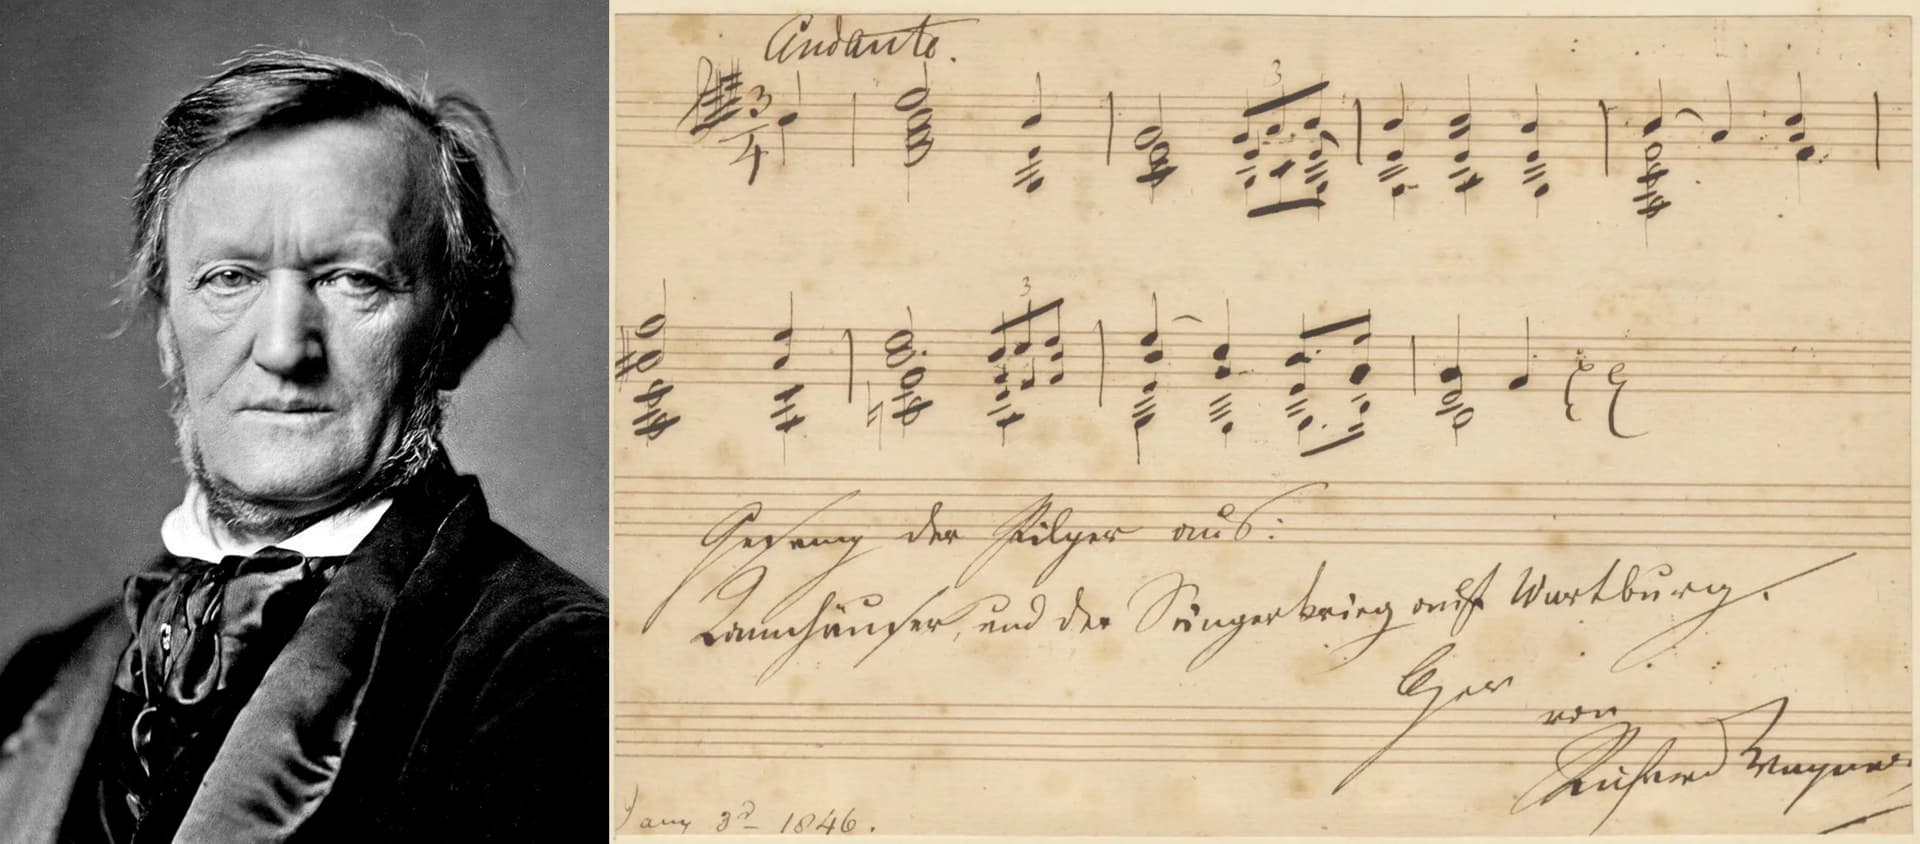 Andante.
3
3/4
3
Gesang der Pilger aus:
Tannhäuser, und der Sängerkrieg auf Wartburg.
Oper
von
Richard Wagner
Jany 3d 1846.